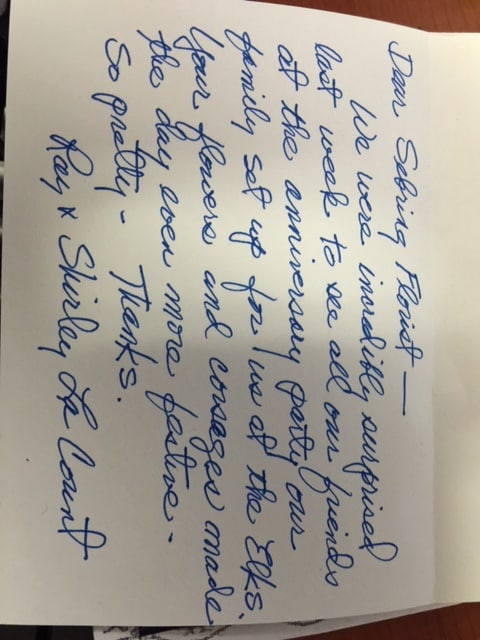 Dear Sebring Florist —
We were incredibly surprised
last week to see all our friends
at the anniversary party our
family set up for us at the Elks.
Your flowers and corsages made
the day even more festive -
So pretty - Thanks.
Ray & Shirley Le Count